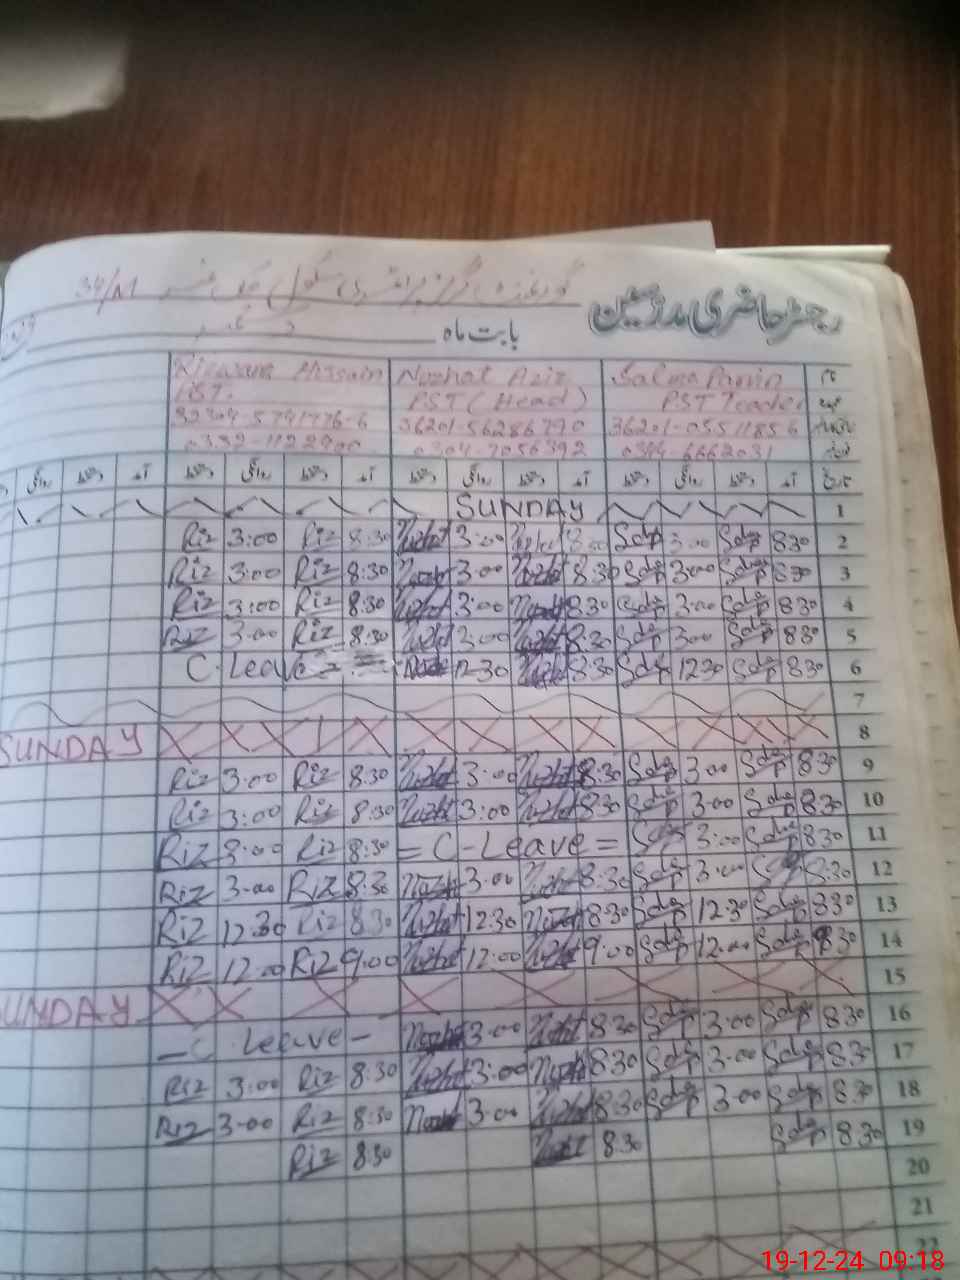 گورنمنٹ گرلز پرائمری سکول چک نمبر 34/M
رجسٹر حاضری مدرسین
بابت ماہ دسمبر
Rizwana Hussain Nuzhat Aziz Salma Parvin نام
PST. PST (Head) PST Teacher عہدہ
32304-5791776-6 36201-0551185 6
0332-1122900 0304-7056392 0344-6662031
روانگی دستخط آمد دستخط روانگی دستخط آمد دستخط روانگی دستخط آمد دستخط روانگی دستخط آمد تاریخ
SUNDAY 1
Riz 3:00 Riz 8:30 Nuzhat 3:00 Nuzhat 8:30 Salma P 3:00 Salma P 8:30 2
Riz 3:00 Riz 8:30 Nuzhat 3:00 Nuzhat 8:30 Salma P 3:00 Salma P 8:30 3
Riz 3:00 Riz 8:30 Nuzhat 3:00 Nuzhat 8:30 Salma P 3:00 Salma P 8:30 4
Riz 3:00 Riz 8:30 Nuzhat 3:00 Nuzhat 8:30 Salma P 3:00 Salma P 8:30 5
C. Leave = Nuzhat 12:30 Nuzhat 8:30 Salma P 12:30 Salma P 8:30 6
7
SUNDAY 8
Riz 3:00 Riz 8:30 Nuzhat 3:00 Nuzhat 8:30 Salma P 3:00 Salma P 8:30 9
Riz 3:00 Riz 8:30 Nuzhat 3:00 Nuzhat 8:30 Salma P 3:00 Salma P 8:30 10
Riz 3:00 Riz 8:30 = C-Leave = Salma P 3:00 Salma P 8:30 11
Riz 3:00 Riz 8:30 Nuzhat 3:00 Nuzhat 8:30 Salma P 3:00 Salma P 8:30 12
Riz 12:30 Riz 8:30 Nuzhat 12:30 Nuzhat 8:30 Salma P 12:30 Salma P 8:30 13
Riz 12:00 Riz 9:00 Nuzhat 12:00 Nuzhat 9:00 Salma P 12:00 Salma P 8:30 14
SUNDAY 15
- C. Leave - Nuzhat 3:00 Nuzhat 8:30 Salma P 3:00 Salma P 8:30 16
Riz 3:00 Riz 8:30 Nuzhat 3:00 Nuzhat 8:30 Salma P 3:00 Salma P 8:30 17
Riz 3:00 Riz 8:30 Nuzhat 3:00 Nuzhat 8:30 Salma P 3:00 Salma P 8:30 18
Riz 8:30 Nuzhat 8:30 Salma P 8:30 19
20
21
22
19-12-24 09:18